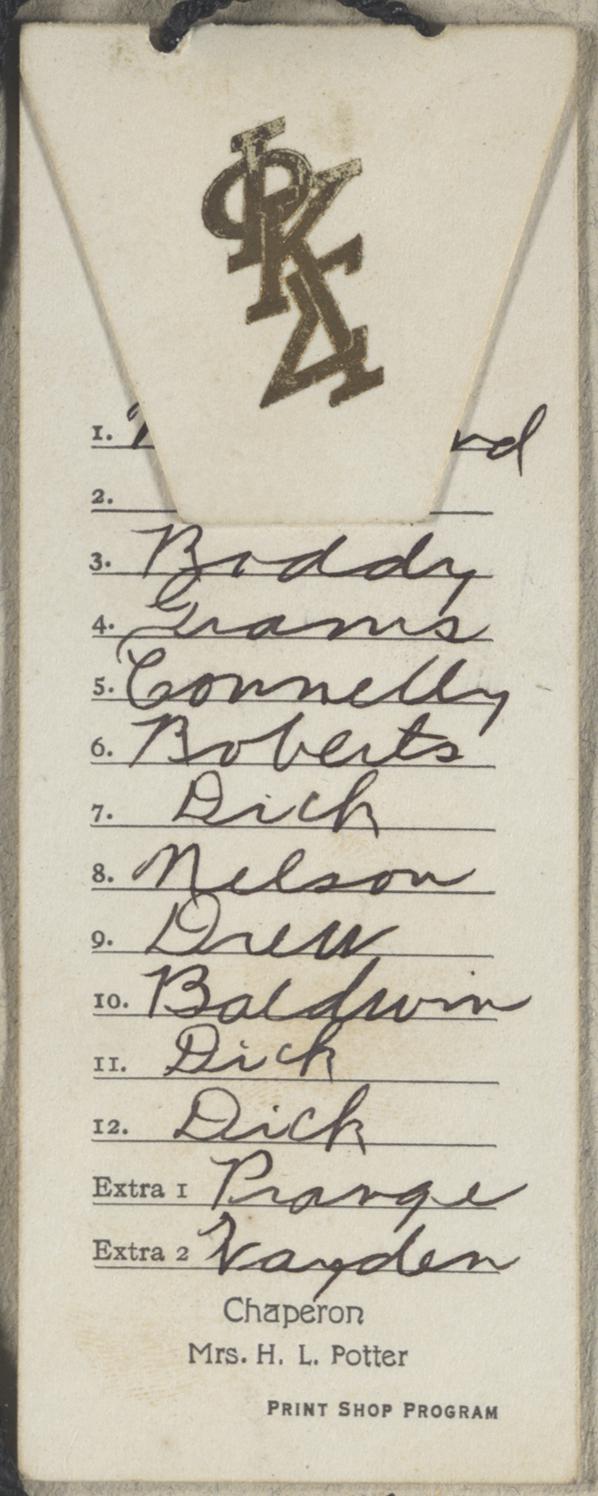 ΦΚΣ
1. rd
2.
3. Boddy
4. Grams
5. Connelly
6. Roberts
7. Dick
8. Nelson
9. Drew
10. Baldwin
11. Dick
12. Dick
Extra 1 Prange
Extra 2
Chaperon
Mrs. H. L. Potter
PRINT SHOP PROGRAM